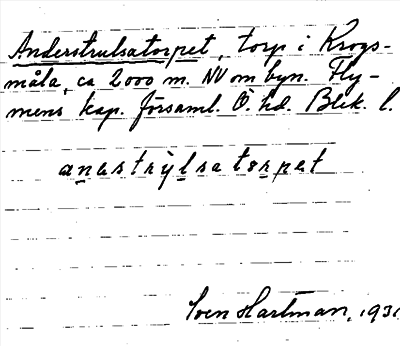 Anderstrulsatorpet, torp i Krogs-
måla, ca 2000 m. NV om byn. Fly-
mens kap. församl. Ö. hd. Blek. l.
anastrỳlsatorpet
Sven Hartman, 1931